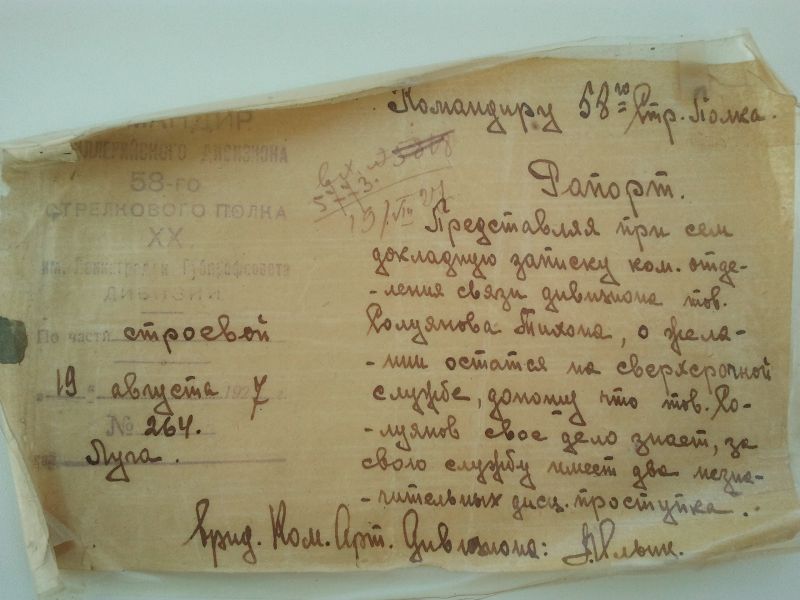 Командиру 58го Стр. Полка.
КОМАНДИР
АРТИЛЛЕРИЙСКОГО ДИВИЗИОНА
58-го
СТРЕЛКОВОГО ПОЛКА
XX
им. Ленинградск. Губпрофсовета
ДИВИЗИИ
По части строевой
19 августа 1927 г.
№ 264.
Луга.
вх
5318
19/VIII 27
Рапорт.
Представляя при сем
докладную записку ком. отде-
-ления связи дивизиона тов.
Ролуянова Тихона, о жела-
-нии остатся на сверхсрочной
службе, доношу что тов. Ро-
-луянов свое дело знает, за
свою службу имеет два незна-
-чительных дисц. проступка.
врид. Ком. Арт. Дивизиона: